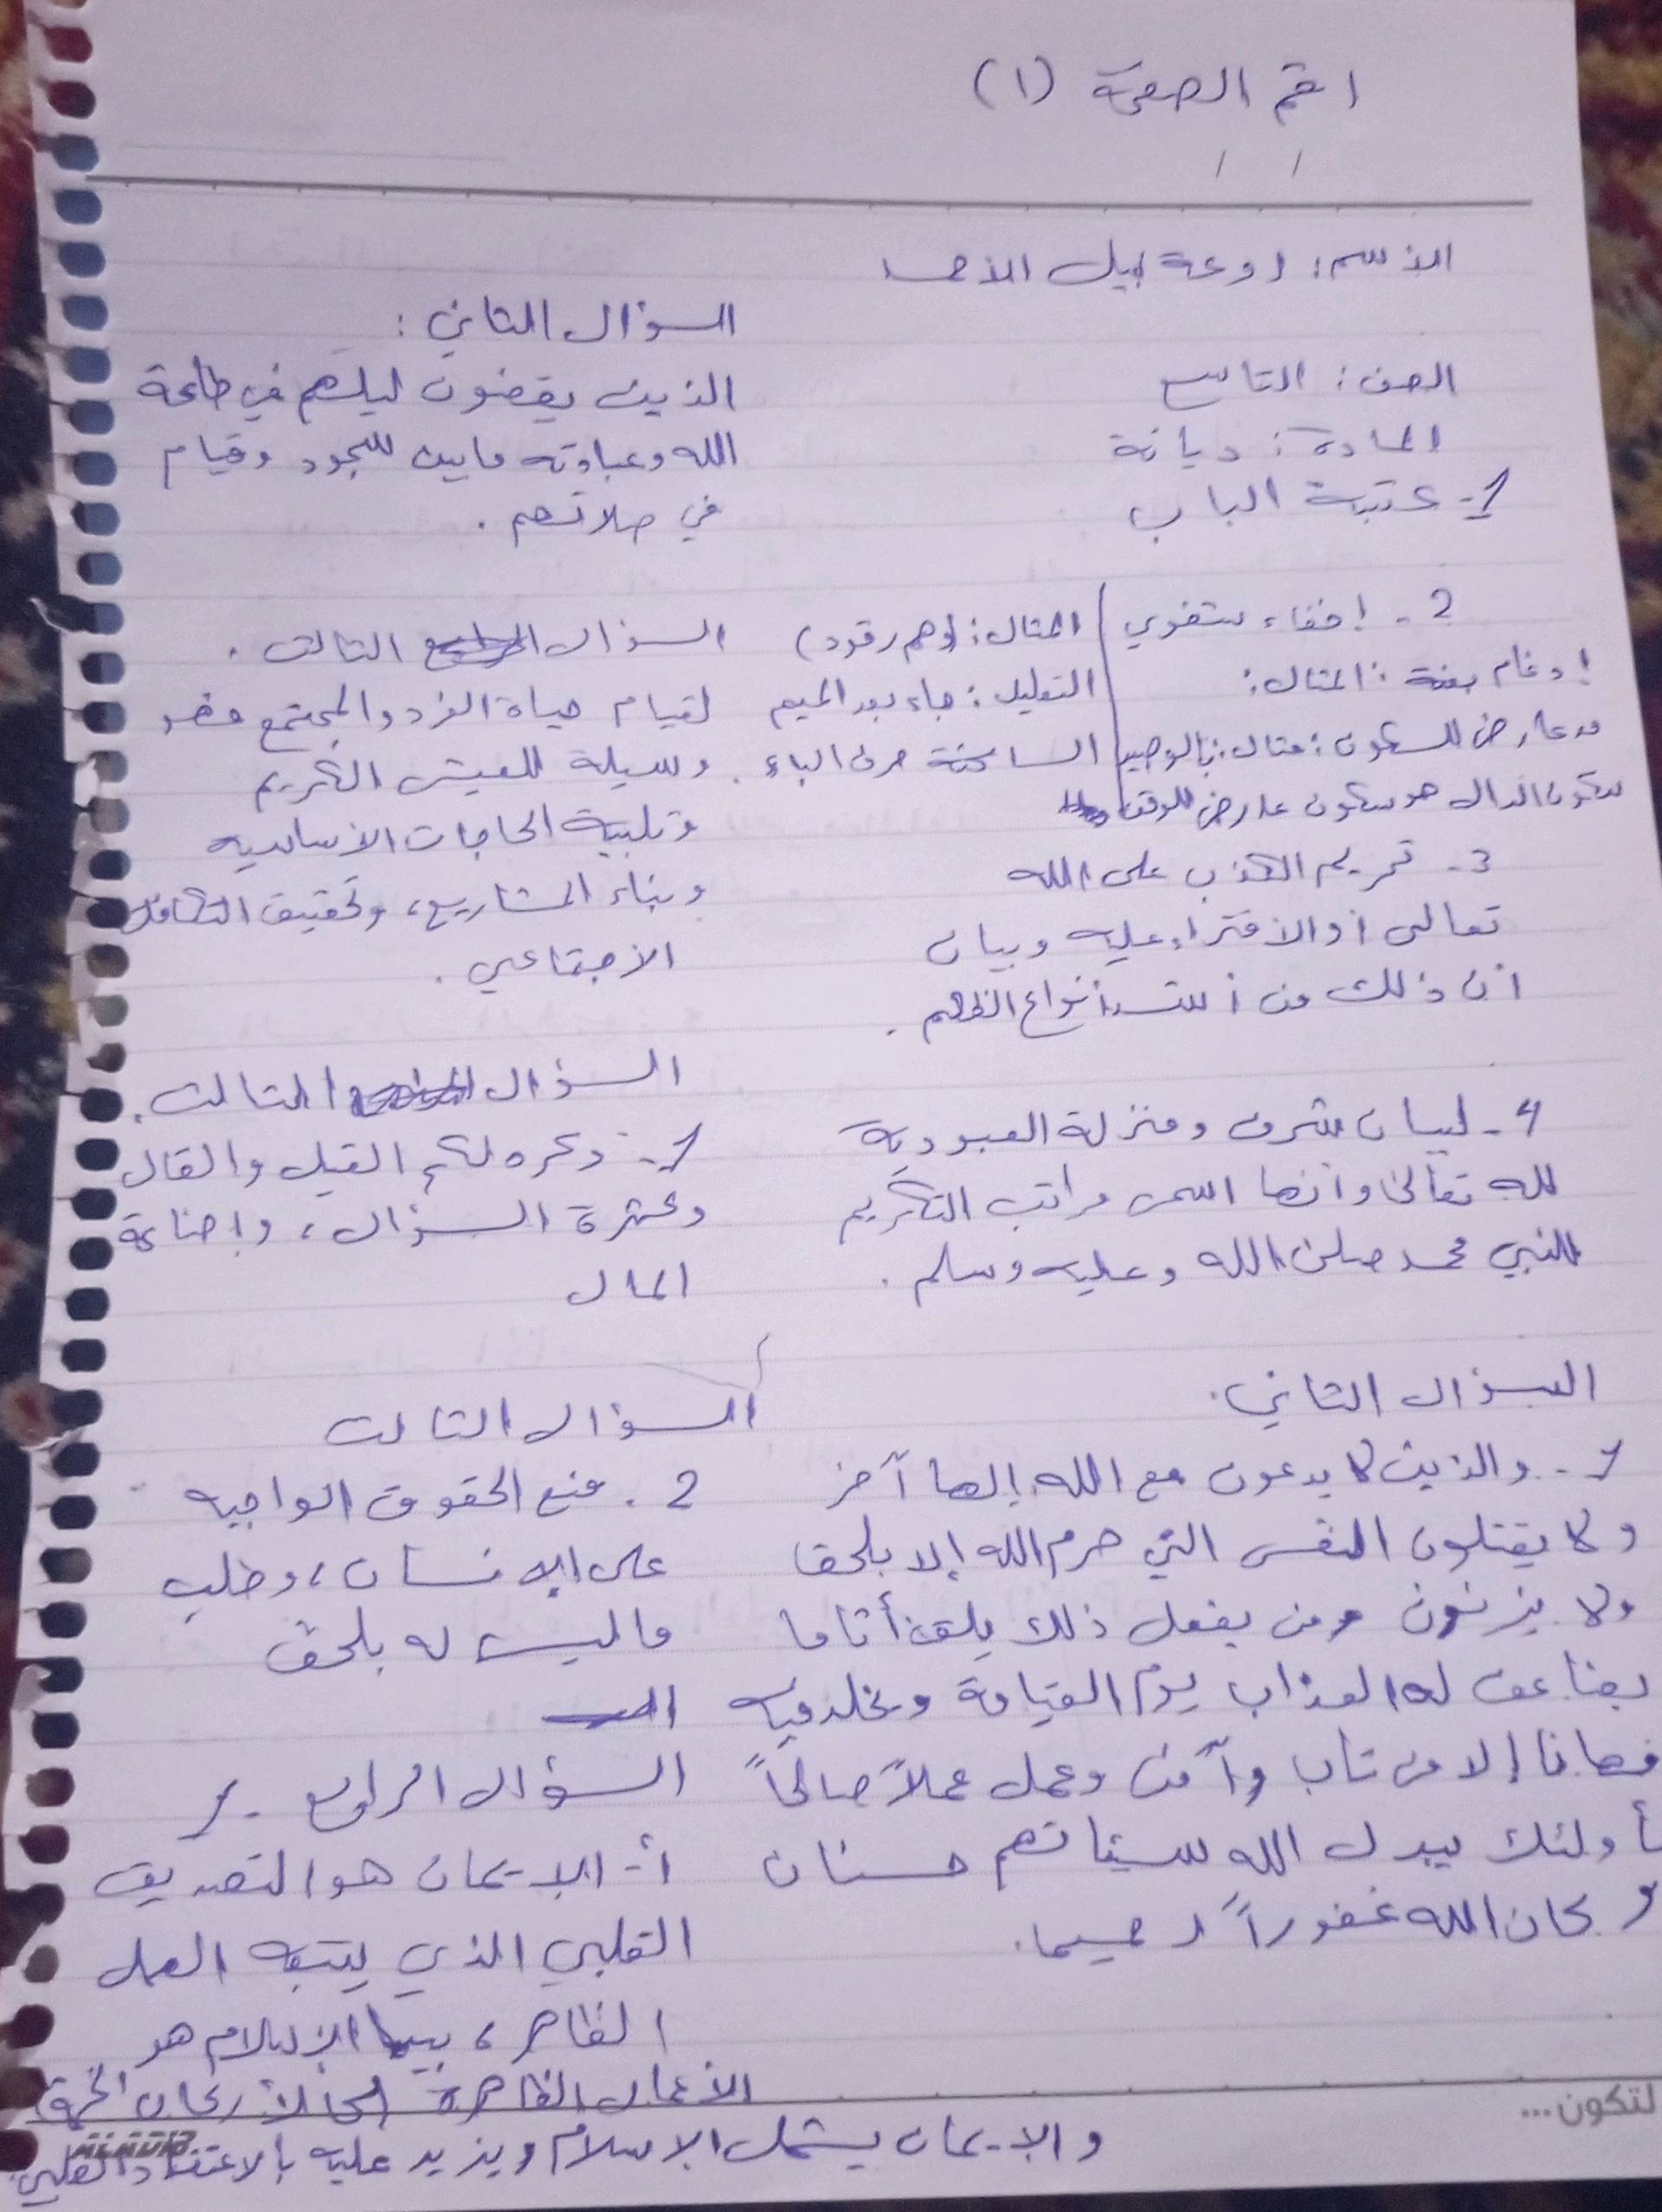 رقم الصفحة (١)
/ /
الاسم: روعة نبيل الاحمد
الصف: التاسع
المادة: ديانة
1- عتبة الباب
2- إخفاء شفوي | المثال: (وهم رقود)
التعليل: جاء بعد الميم
الساكنة حرف الباء.
إدغام بغنة: المثال:
مد عارض للسكون: مثال: بالوصيد
سكون الدال هو سكون عارض للوقف
3- تحريم الكذب على الله
تعالى أو الافتراء عليه وبيان
أن ذلك من أشد أنواع الظلم.
4- لبيان شرف ومنزلة العبودية
لله تعالى وأنها اسمى مراتب التكريم
للنبي محمد صلى الله وعليه وسلم.
السؤال الثاني.
1- والذين لا يدعون مع الله إلها آخر
ولا يقتلون النفس التي حرم الله إلا بلحق
ولا يزنون ومن يفعل ذلك يلق أثاما
يضاعف له العذاب يوم القيامة ويخلد فيه
مهانا إلا من تاب وآمن وعمل عملاً صالحاً
فأولئك يبدل الله سيئاتهم حسنات
و كان الله غفوراً رحيما.
السؤال الثاني:
الذين يقضون ليلهم في طاعة
الله وعبادته مابين سجود وقيام
في صلاتهم.
السؤال الثالث.
لقيام حياة الفرد والمجتمع فهو
وسيلة للعيش الكريم
وتلبية الحاجات الأساسيه
وبناء المشاريع، وتحقيق التكافل
الاجتماعي.
السؤال الثالث.
1- وكره لكم القيل والقال
وكثرة السؤال، وإضاعة
المال
السؤال الثالث
2. منع الحقوق الواجبه
على الإنسان، وطلب
ماليس له بلحق
السؤال الرابع - 1
أ- الإيمان هو التصديق
القلبي الذي يتبعه العمل
الظاهر، بينما الإسلام هو
الأعمال الظاهرة الأركان الخمسة
والإيمان يشمل الإسلام ويزيد عليه بالاعتقاد القلبي.
لتكون...